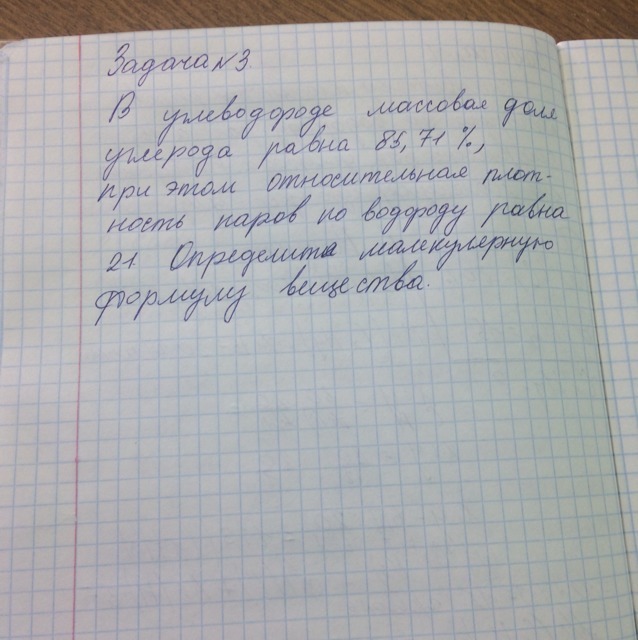 Задача №3.
В углеводороде массовая доля
углерода равна 85,71 %,
при этом относительная плот-
ность паров по водороду равна
21 Определите малекулерную
формулу вещества.